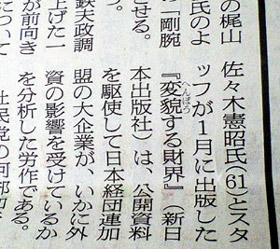 の梶山
氏のよ
「剛腕
せる。
鉄夫政調
上げた一
が前向き
について
佐々木憲昭氏（61）とスタ
ッフが1月に出版した
へんぼう
『変貌する財界』（新日
本出版社）は、公開資料
を駆使して日本経団連加
盟の大企業が、いかに外
資の影響を受けているか
を分析した労作である。
社民党の阿部